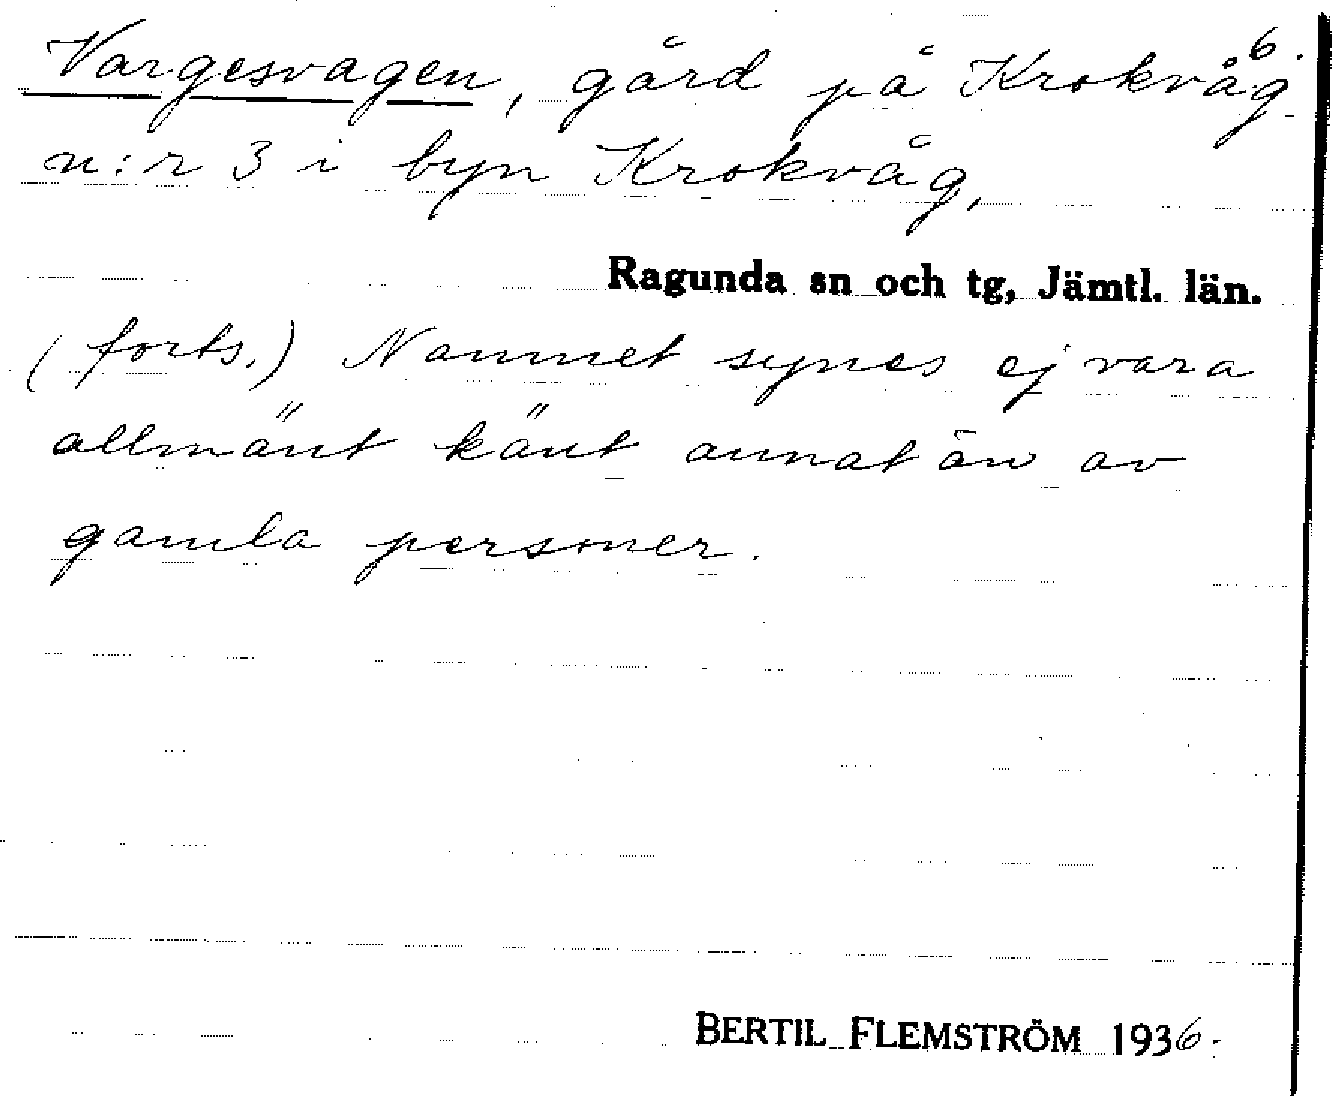 Vargesvagen, gård på Krokvåg 6.
n:r 3 i byn Krokvåg,
Ragunda sn och tg, Jämtl. län.
(forts.) Namnet synes ej vara
allmänt känt annat än av
gamla personer.
BERTIL FLEMSTRÖM 1936.